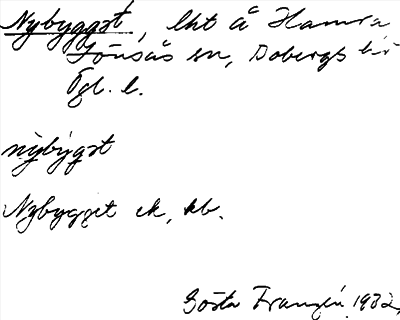 Nybygget, lht å Hamra
Tönsås sn, Dobergs hd
Ögl. l.
nybyget
Nybygget ek, kb.
Gösta Franzén 1932,